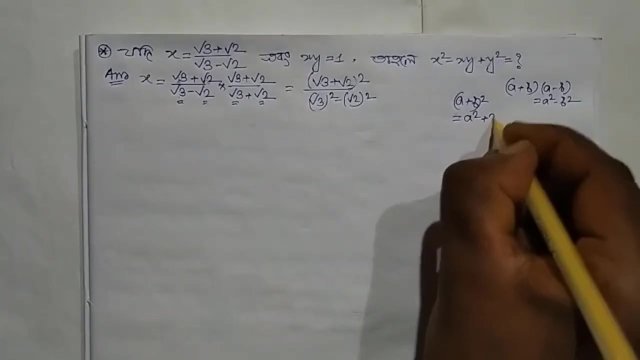 * যদি x = √3+√2 / √3-√2 এবং xy = 1, তাহলে x² = xy + y² = ?
Ans x = √3+√2 / √3-√2 × √3+√2 / √3+√2 = (√3+√2)² / (√3)² - (√2)²
(a+b)(a-b)
= a² - b²
(a+b)²
= a² + 2